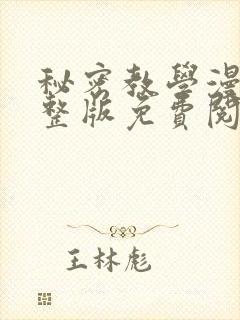 秘密教學漫
整版免費閱
王林彪